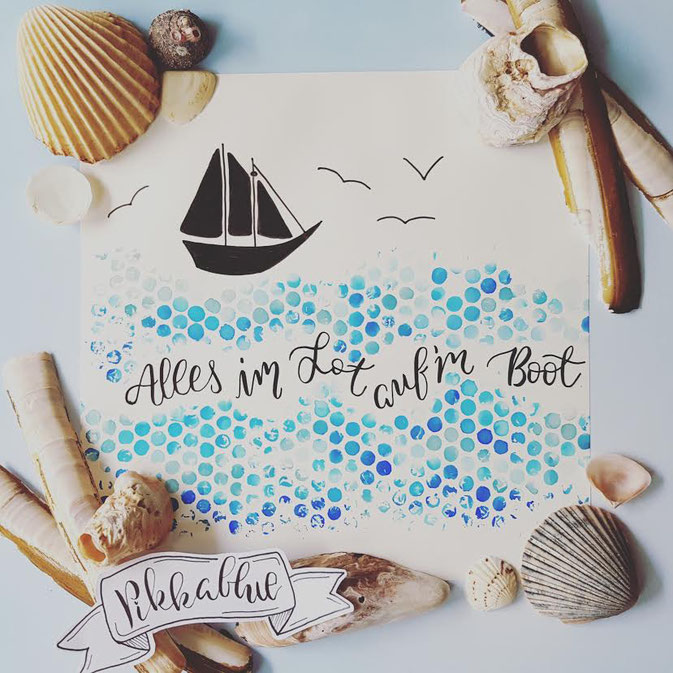 Alles im Lot auf'm Boot
Pikkablue